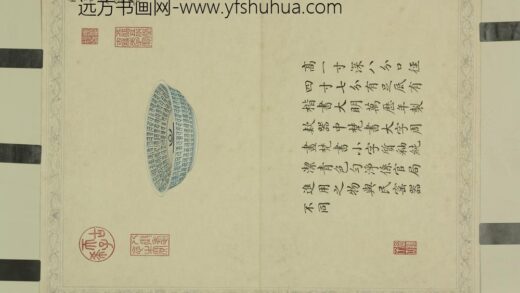 远方书画网-www.yfshuhua.com
高一寸深八分口徑
四寸七分有足底有
楷書大明萬厯年製
款器中梵書大字周
畫梵書小字質釉純
潔青色勻淨係官局
進用之物與民窰器
不同